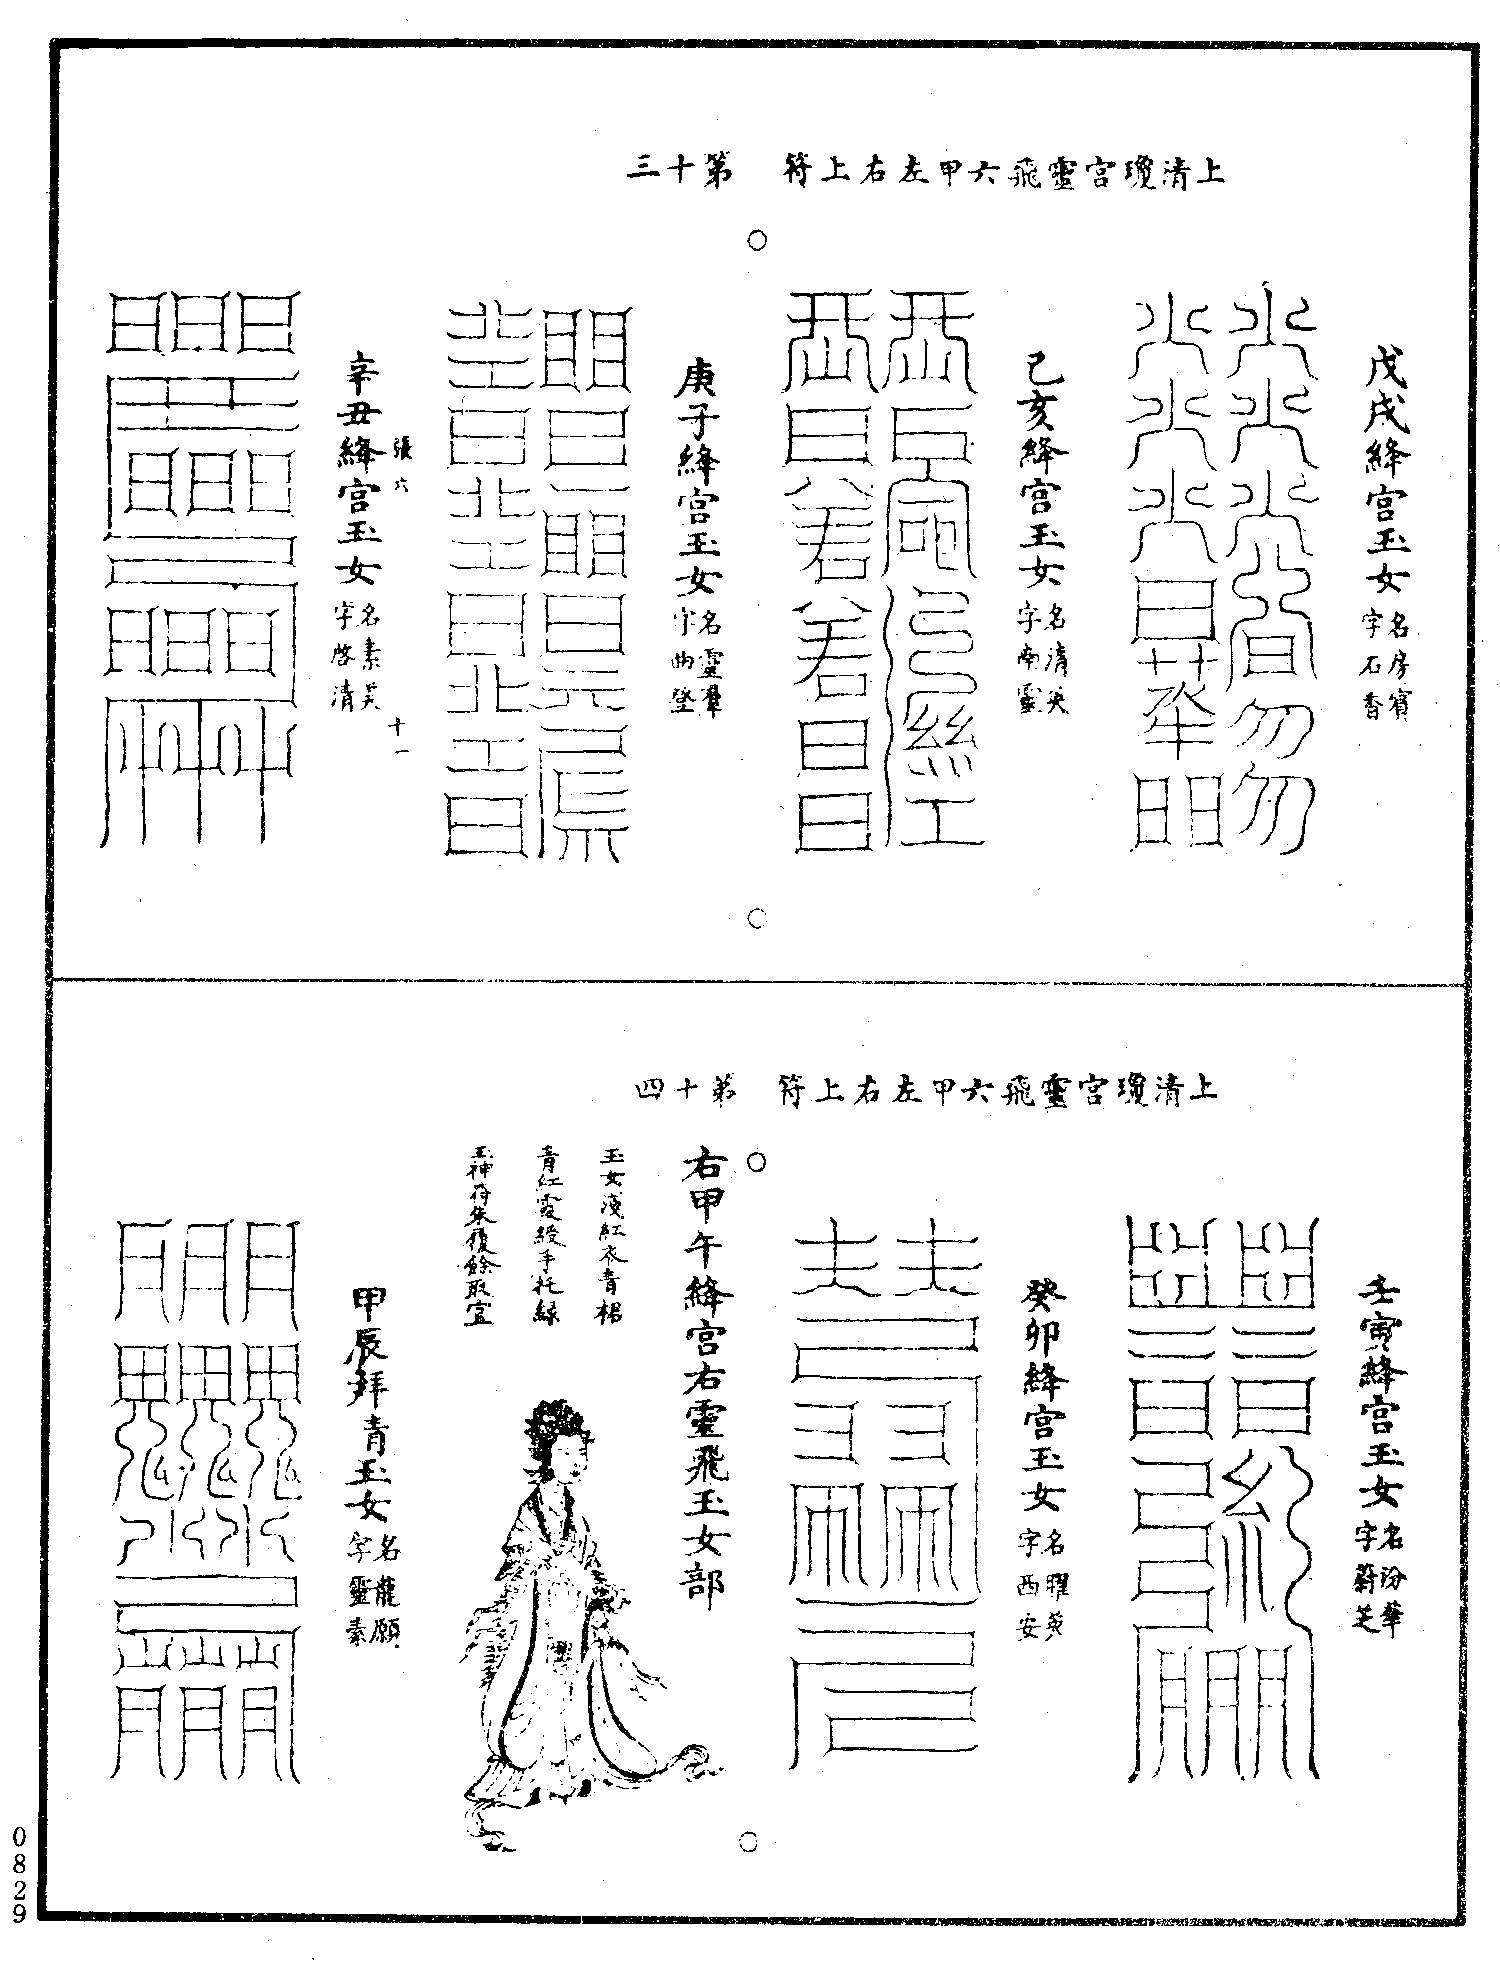 上清瓊宮靈飛六甲左右上符　第十三
戊戌絳宮玉女
名房賓
字石香
己亥絳宮玉女
名清英
字南靈
庚子絳宮玉女
名靈羣
字曲登
張六
十一
辛丑絳宮玉女
名素英
字啓清
上清瓊宮靈飛六甲左右上符　第十四
壬寅絳宮玉女
名汾華
字蔚芝
癸卯絳宮玉女
名曜英
字西安
右甲午絳宮右靈飛玉女部
玉女淺紅衣青裙
青紅霞綬手托綠
玉神符朱履餘取宜
甲辰拜青玉女
名龍願
字靈素
0829